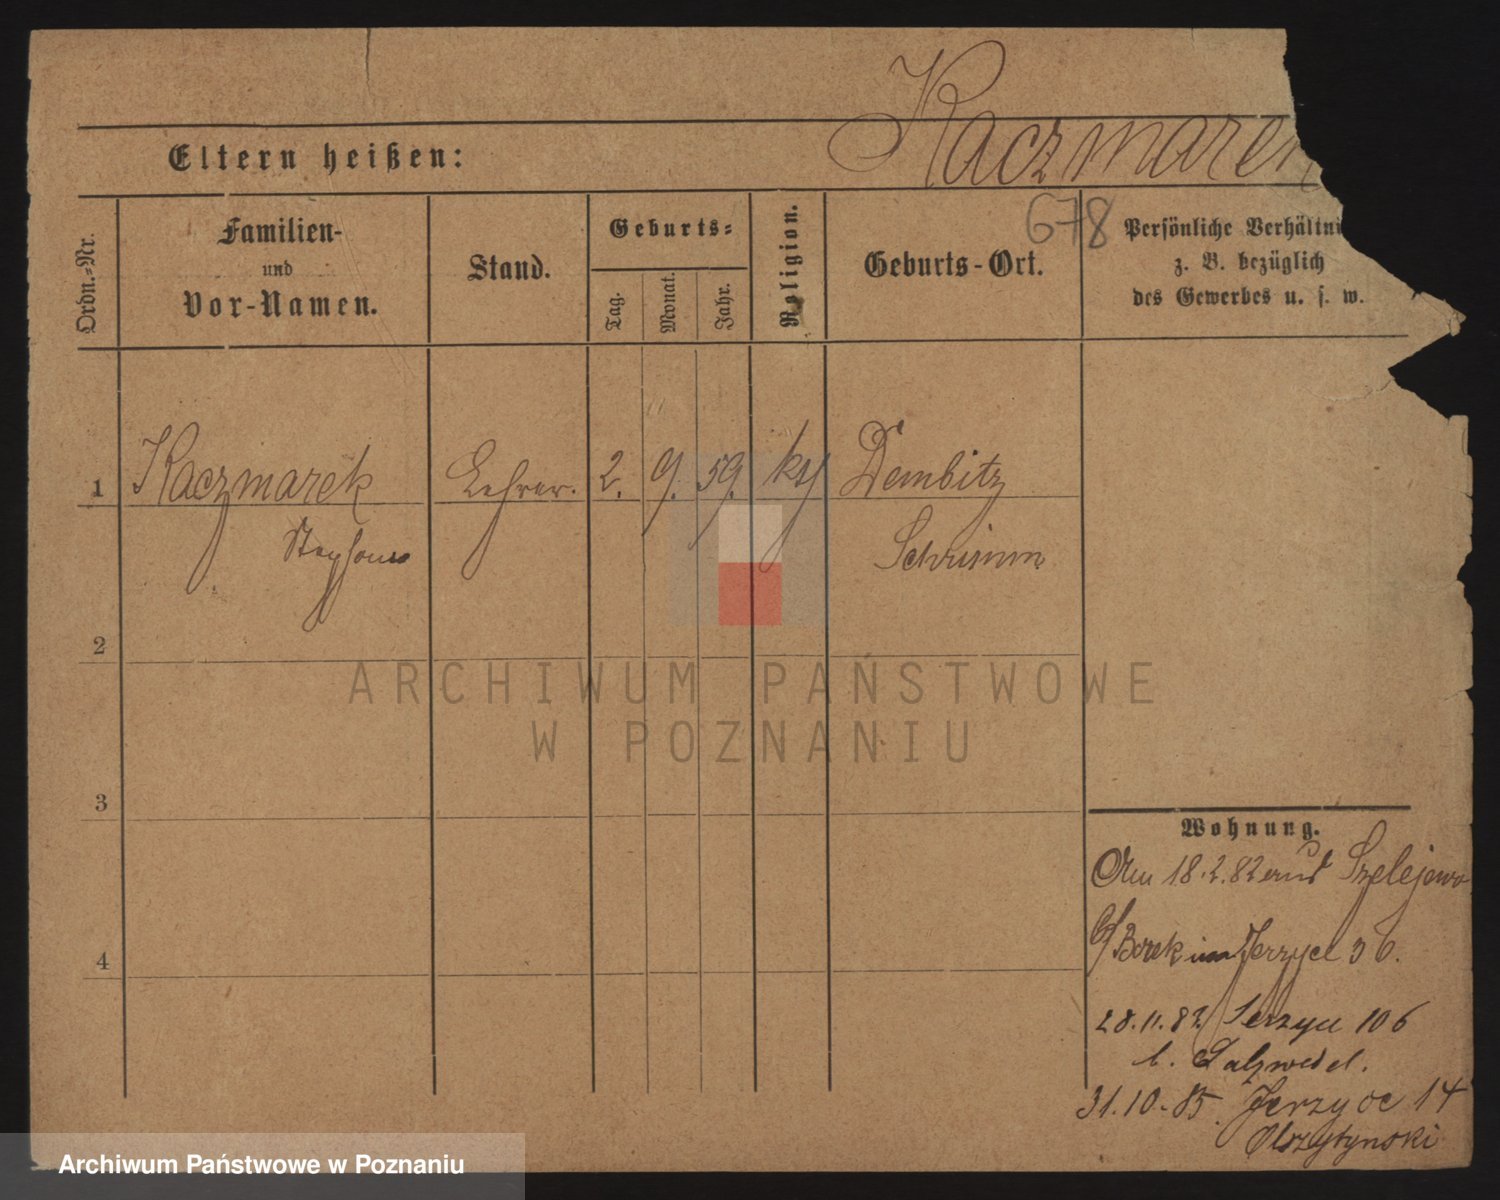 Kaczmarek
Eltern heißen:
678
Ordn.=Nr.
Familien-
und
Vor-Namen.
Stand.
Geburts=
Tag.
Monat.
Jahr.
Religion.
Geburts-Ort.
Persönliche Verhältni
z. B. bezüglich
des Gewerbes u. s. w.
1 Kaczmarek Lehrer. 2. 9. 59. Dembitz
Schrimm
2
3
4
Wohnung.
Am 18.2.82 aus Szelejewo
b/ Borek in Jerzyce 36.
28.11.82 Jerzyce 106
b. Salzwedel.
31.10.85 Jerzyce 14
Olszytynski
ARCHIWUM PAŃSTWOWE
W POZNANIU
Archiwum Państwowe w Poznaniu